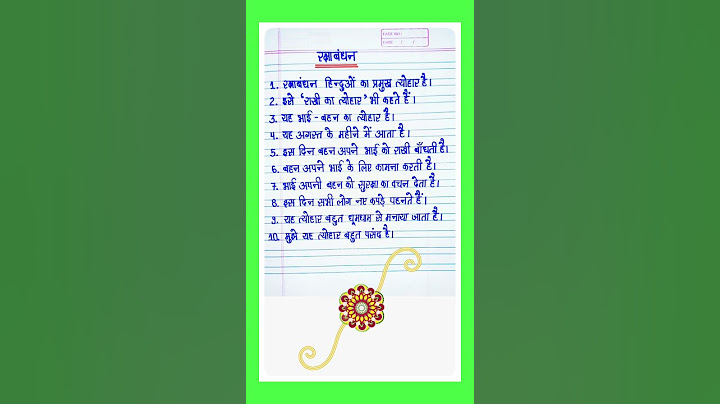 PAGE NO.:
DATE: / /
रक्षाबंधन
1. रक्षाबंधन हिन्दुओं का प्रमुख त्योहार है।
2. इसे 'राखी का त्योहार' भी कहते हैं।
3. यह भाई - बहन का त्योहार है।
4. यह अगस्त के महीने में आता है।
5. इस दिन बहन अपने भाई को राखी बाँधती है।
6. बहन अपने भाई के लिए कामना करती है।
7. भाई अपनी बहन को सुरक्षा का वचन देता है।
8. इस दिन सभी लोग नए कपड़े पहनते हैं।
9. यह त्योहार बहुत धूमधाम से मनाया जाता है।
10. मुझे यह त्योहार बहुत पसंद है।